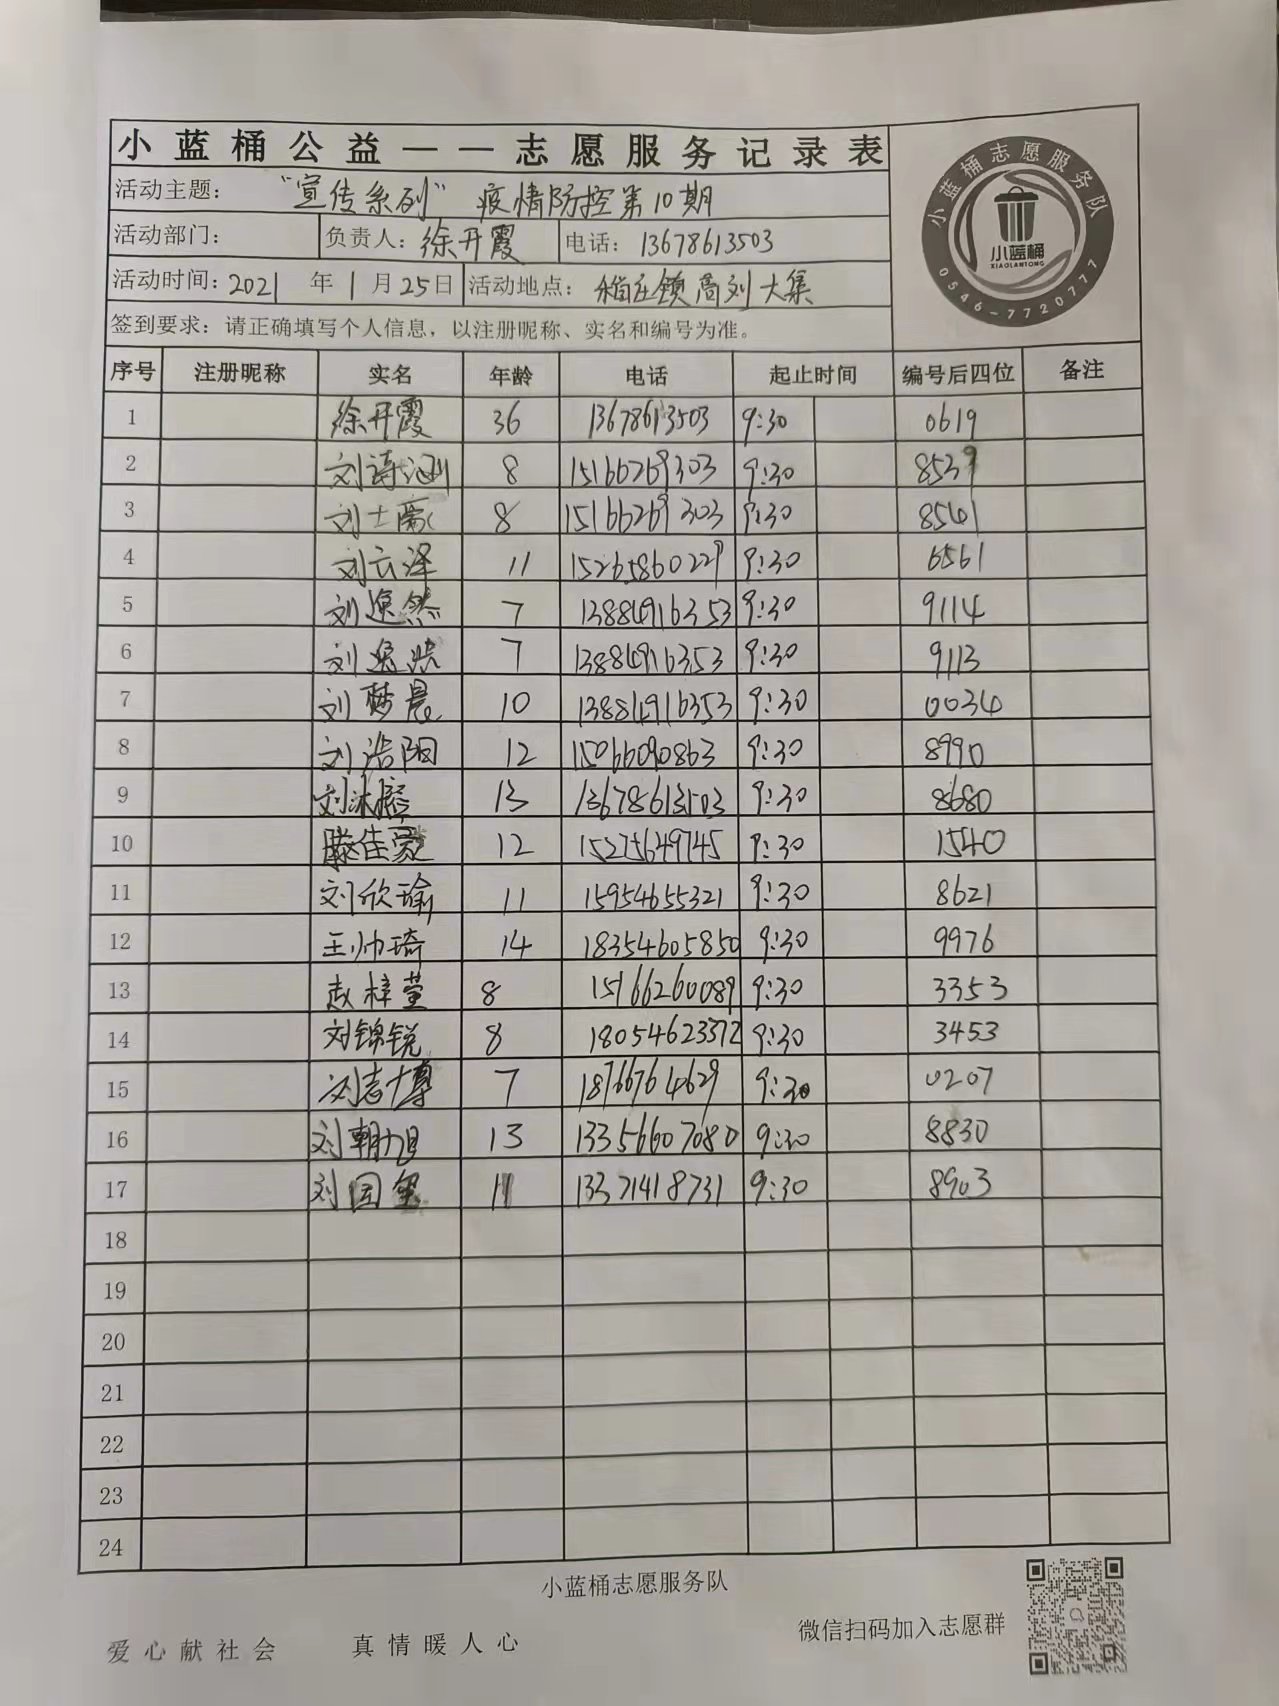 小蓝桶公益——志愿服务记录表
活动主题： "宣传系列" 疫情防控第10期
活动部门： 负责人：徐开霞 电话：13678613503
活动时间：2021 年 1 月 25日 活动地点：稻庄镇高刘大集
签到要求：请正确填写个人信息，以注册昵称、实名和编号为准。
小蓝桶志愿服务队
小蓝桶
XIAOLANTONG
0546-7720777
序号 注册昵称 实名 年龄 电话 起止时间 编号后四位 备注
1 徐开霞 36 13678613503 9:30 0619
2 刘诗涵 8 15166269303 9:30 8539
3 刘士 8 15166269303 9:30 8541
4 刘云泽 11 15265860229 9:30 6561
5 刘逸然 7 13884916353 9:30 9114
6 刘逸 7 13884916353 9:30 9113
7 刘梦晨 10 13884916353 9:30 0034
8 刘浩阳 12 15066090863 9:30 8990
9 刘沐橙 13 13678613503 9:30 8680
10 滕佳豪 12 15275649745 9:30 1540
11 刘欣瑜 11 15954655321 9:30 8621
12 王帅琦 14 18354605850 9:30 9976
13 赵梓萱 8 15166260089 9:30 3353
14 刘锦锐 8 18054623372 9:30 3453
15 刘志博 7 18766764629 9:30 0207
16 刘朝旭 13 13356607080 9:30 8830
17 刘国玺 11 13371418731 9:30 8903
18
19
20
21
22
23
24
小蓝桶志愿服务队
爱心献社会 真情暖人心 微信扫码加入志愿群